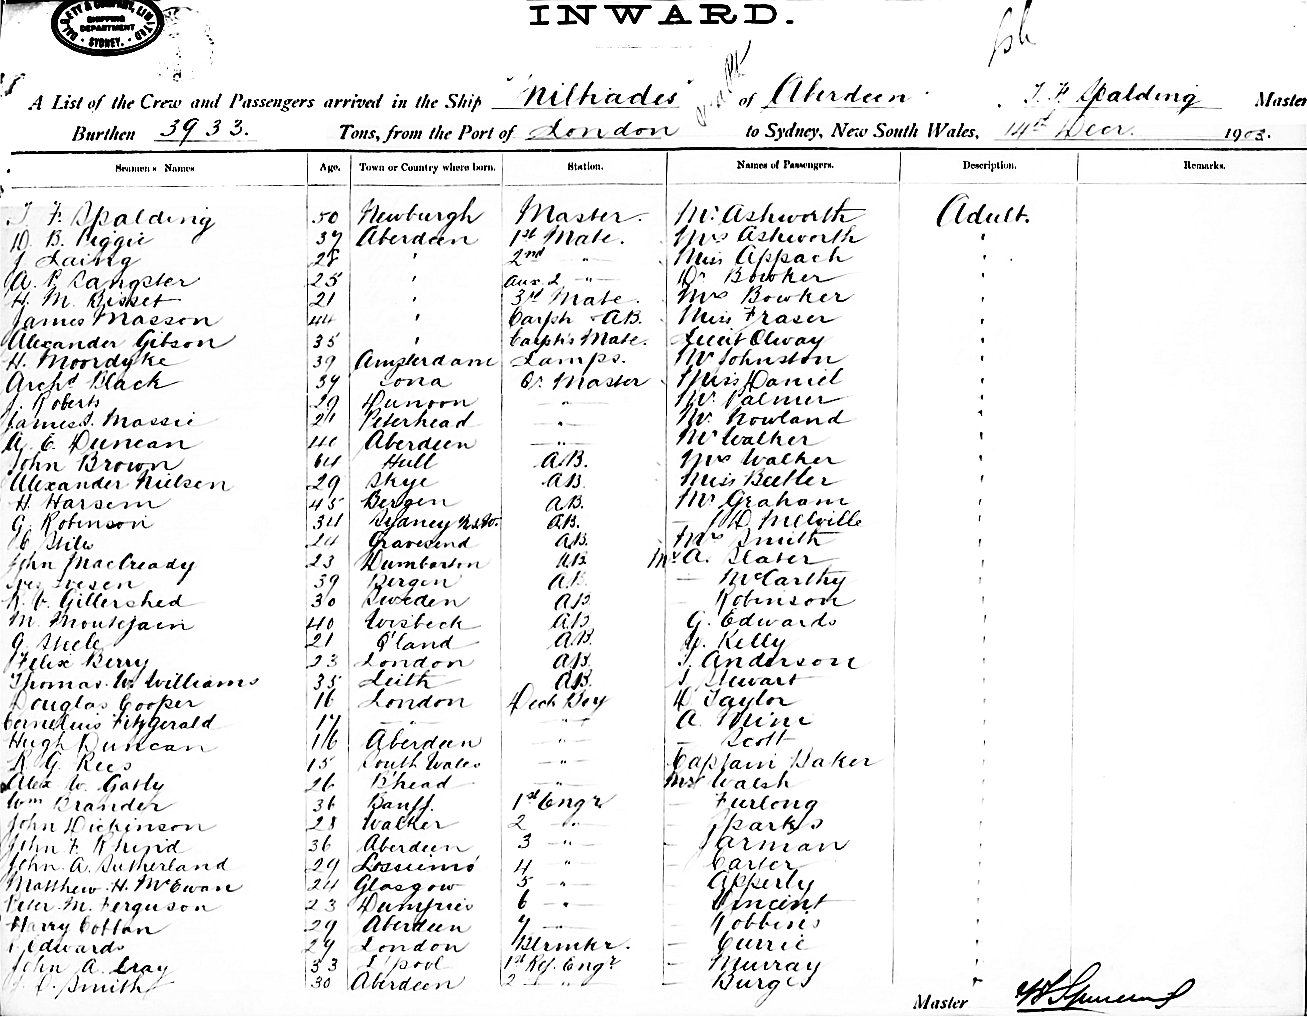 DALGETY & COMPANY, LIMITED
SHIPPING DEPARTMENT
SYDNEY.
INWARD.
A List of the Crew and Passengers arrived in the Ship "Miltiades" of Aberdeen. T. F. Spalding Master
Burthen 3933. Tons, from the Port of London to Sydney, New South Wales, 14th Decr. 1903.
Seamen's Names Age. Town or Country where born. Station. Names of Passengers. Description. Remarks.
T. F. Spalding 50 Newburgh Master. Mr Ashworth Adult.
D. B. Piggie 37 Aberdeen 1st Mate. Mrs Ashworth "
J. Laing 28 " 2nd " Miss Appach "
A. P. Sangster 25 " Aux 2 " Dr Bowker "
H. M. Bisset 21 " 3rd Mate. Mrs Bowker "
James Masson 44 " Carptr AB. Miss Fraser "
Alexander Gibson 35 " Carptr's Mate. Lieut Olway "
H. Moordyke 39 Amsterdam Lamps. Mr Johnston "
Archd Black 39 Iona Qr Master Miss Daniel "
J. Roberts 29 Dunoon " Mr Palmer "
James S. Massie 24 Peterhead " Mr Nowland "
A. E. Duncan 44 Aberdeen " Mr Walker "
John Brown 64 Hull AB. Mrs Walker "
Alexander Nielsen 29 Skye AB. Miss Beetler "
H. Harsem 45 Bergen AB. Mr Graham "
G. Robinson 34 Sydney N.S.W. AB. — J D Melville "
Stiles 24 Gravesend AB. Mrs Smith "
John MacCready 23 Dumbarton AB Mr A. Slater "
Ivesen 39 Bergen AB. — McCarthy "
K. V. Gillershed 30 Sweden AB Robinson "
M. Montejain 40 Wisbeck AB G. Edwards "
G. Steele 21 Q'land AB. Kelly "
Felix Berry 23 London AB. J. Anderson "
Thomas W. Williams 35 Leith AB. J. Stewart "
Douglas Cooper 16 London Deck Boy D Taylor "
Cornelius Fitzgerald 17 " " A. "
Hugh Duncan 16 Aberdeen " — Scott "
R. G. Rees 15 South Wales " Captain Baker "
Alex W. Gatly 26 B'head " Mrs Walsh "
Wm Brander 36 Banff. 1st Engr — Furlong "
John Dickinson 28 Walker 2 " — Sparks "
John F. Rhind 36 Aberdeen 3 " — Jarman "
John A. Sutherland 29 Lossiemo' 4 " — Carter "
Matthew H. McEwan 24 Glasgow 5 " — Apperly "
Peter M. Ferguson 23 Dumfries 6 " — Vincent "
Harry Cottan 29 Aberdeen 7 " — Robbins "
Edwards 29 London Blrmkr. — Currie "
John A. Gray 33 L'pool 1st Ref. Engr — Murray "
Smith 30 Aberdeen 2 " — Burges "
Master